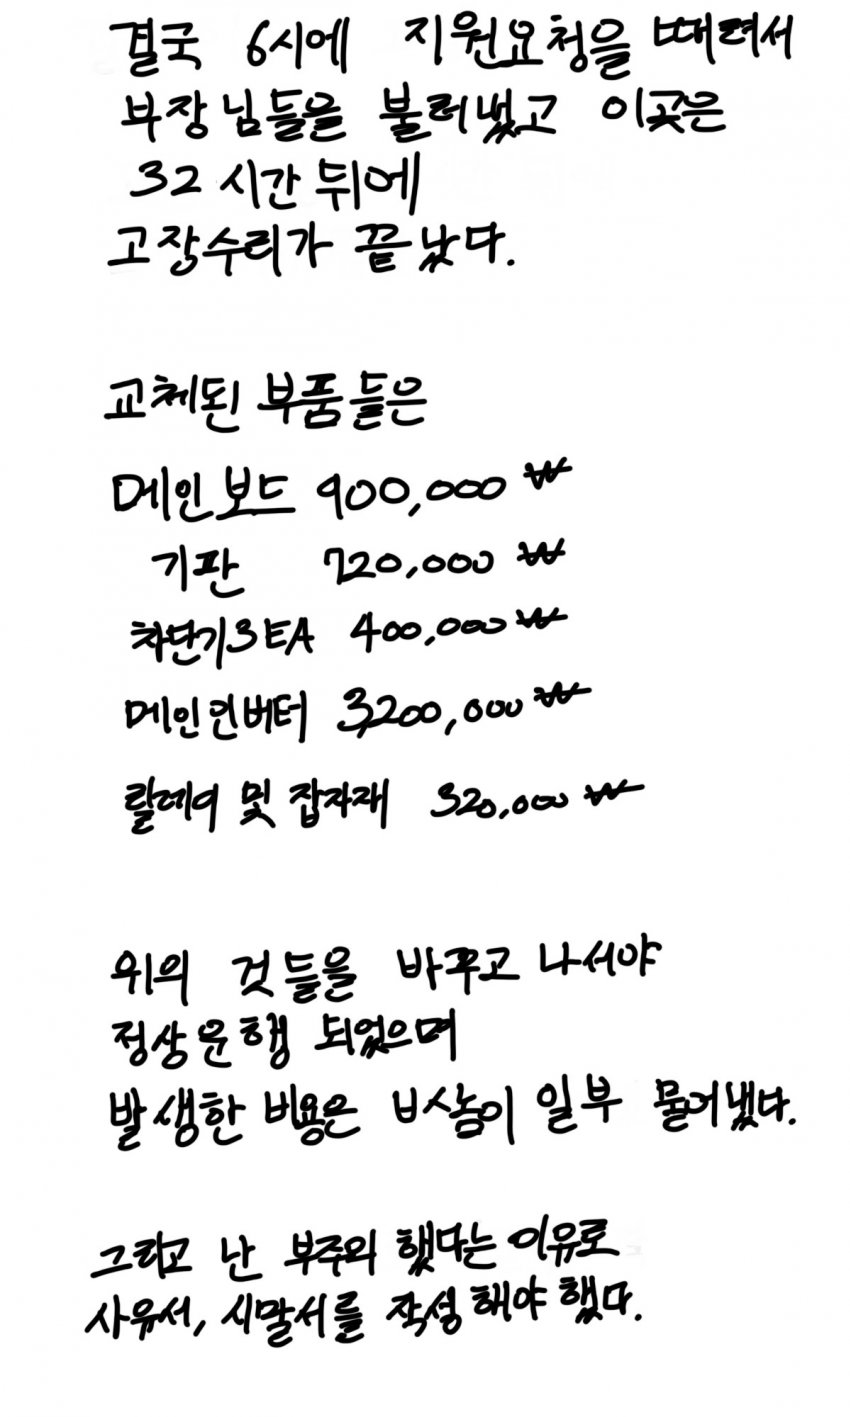 결국 6시에 지원요청을 때려서
부장님들을 불러냈고 이곳은
32시간 뒤에
고장수리가 끝났다.
교체된 부품들은
메인보드 900,000₩
기판 720,000₩
차단기3EA 400,000₩
메인인버터 3,200,000₩
릴레이 및 잡자재 320,000₩
위의 것들을 바꾸고 나서야
정상운행 되었으며
발생한 비용은 B놈이 일부 물어냈다.
그리고 난 부주의 했다는 이유로
사유서, 시말서를 작성해야 했다.